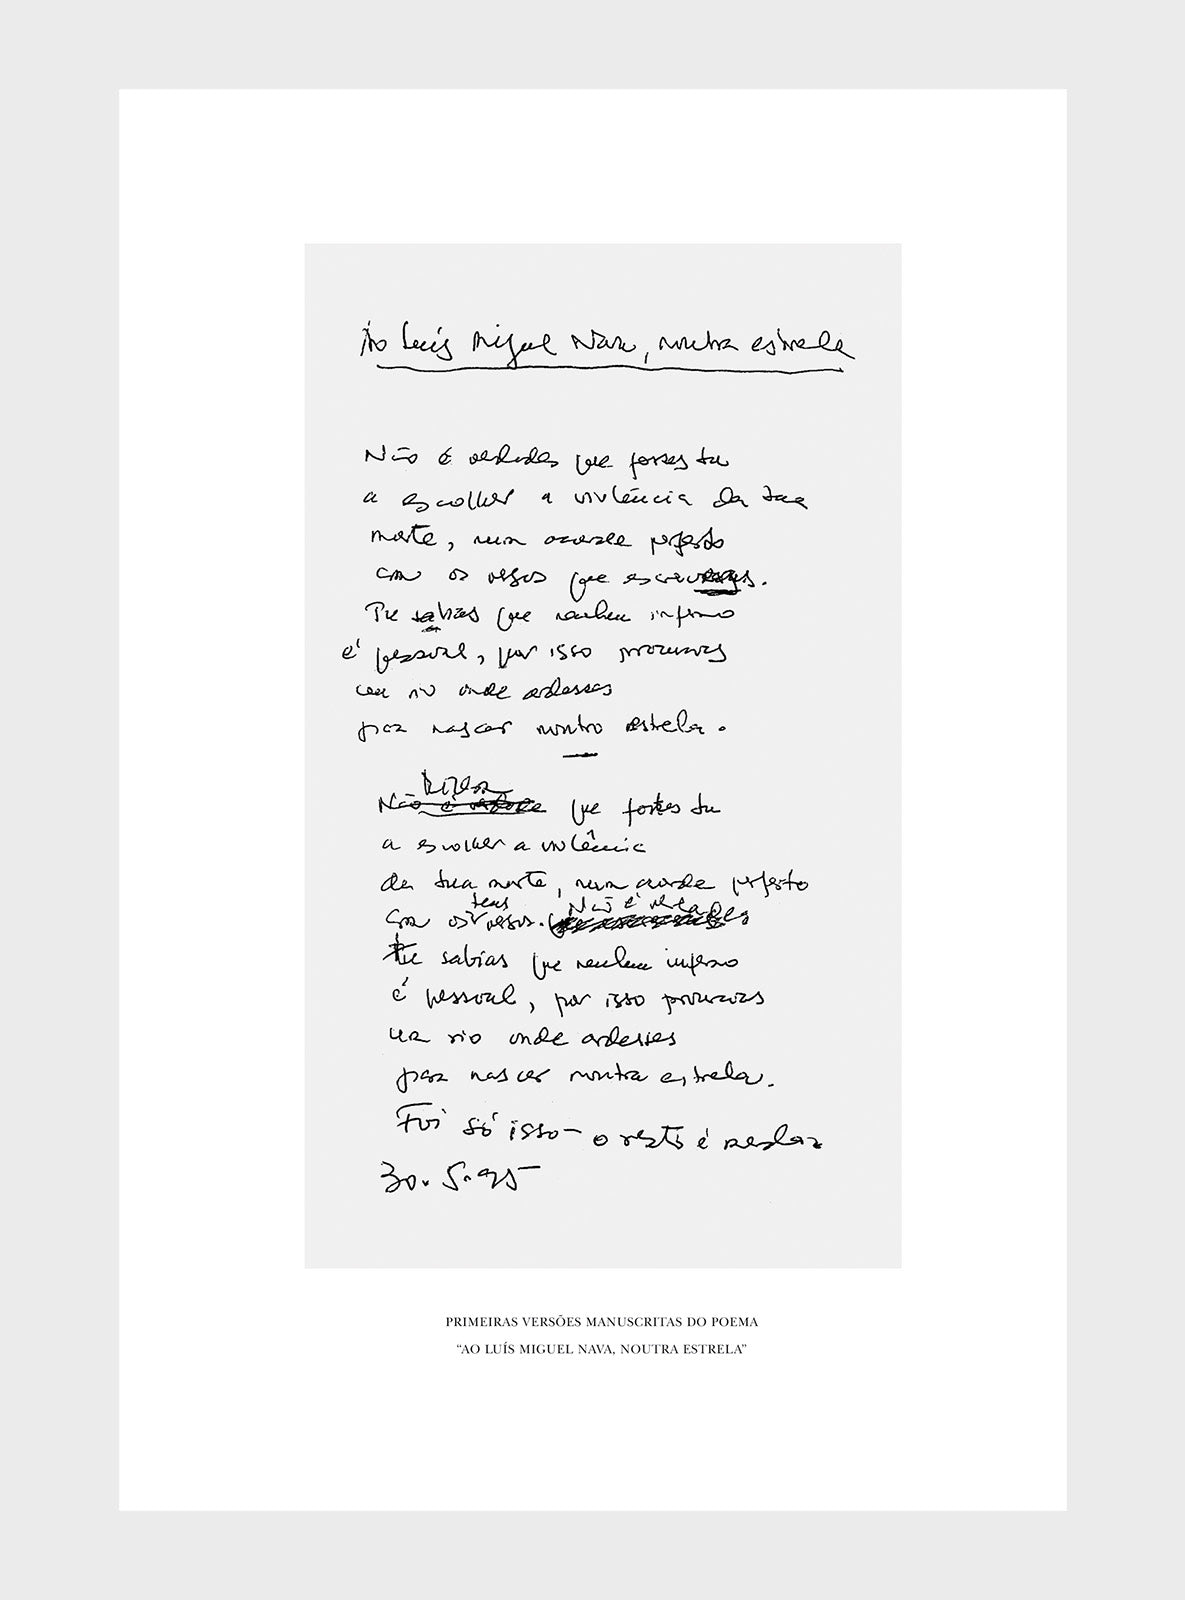 Ao Luís Miguel Nava, noutra estrela
Não é verdade que fosses tu
a escolher a violência da tua
morte, num acorde perfeito
com os versos que escrevias.
Tu sabias que nenhum inferno
é pessoal, por isso procuravas
um rio onde ardesses
para nascer noutra estrela.
Dizem
Não é verdade que fosses tu
a escolher a violência
da tua morte, num acorde perfeito
teus Não é verdade
com os versos.
Tu sabias que nenhum inferno
é pessoal, por isso procuravas
um rio onde ardesses
para nascer noutra estrela.
Foi só isso – o resto é
30.5.95
PRIMEIRAS VERSÕES MANUSCRITAS DO POEMA
“AO LUÍS MIGUEL NAVA, NOUTRA ESTRELA”